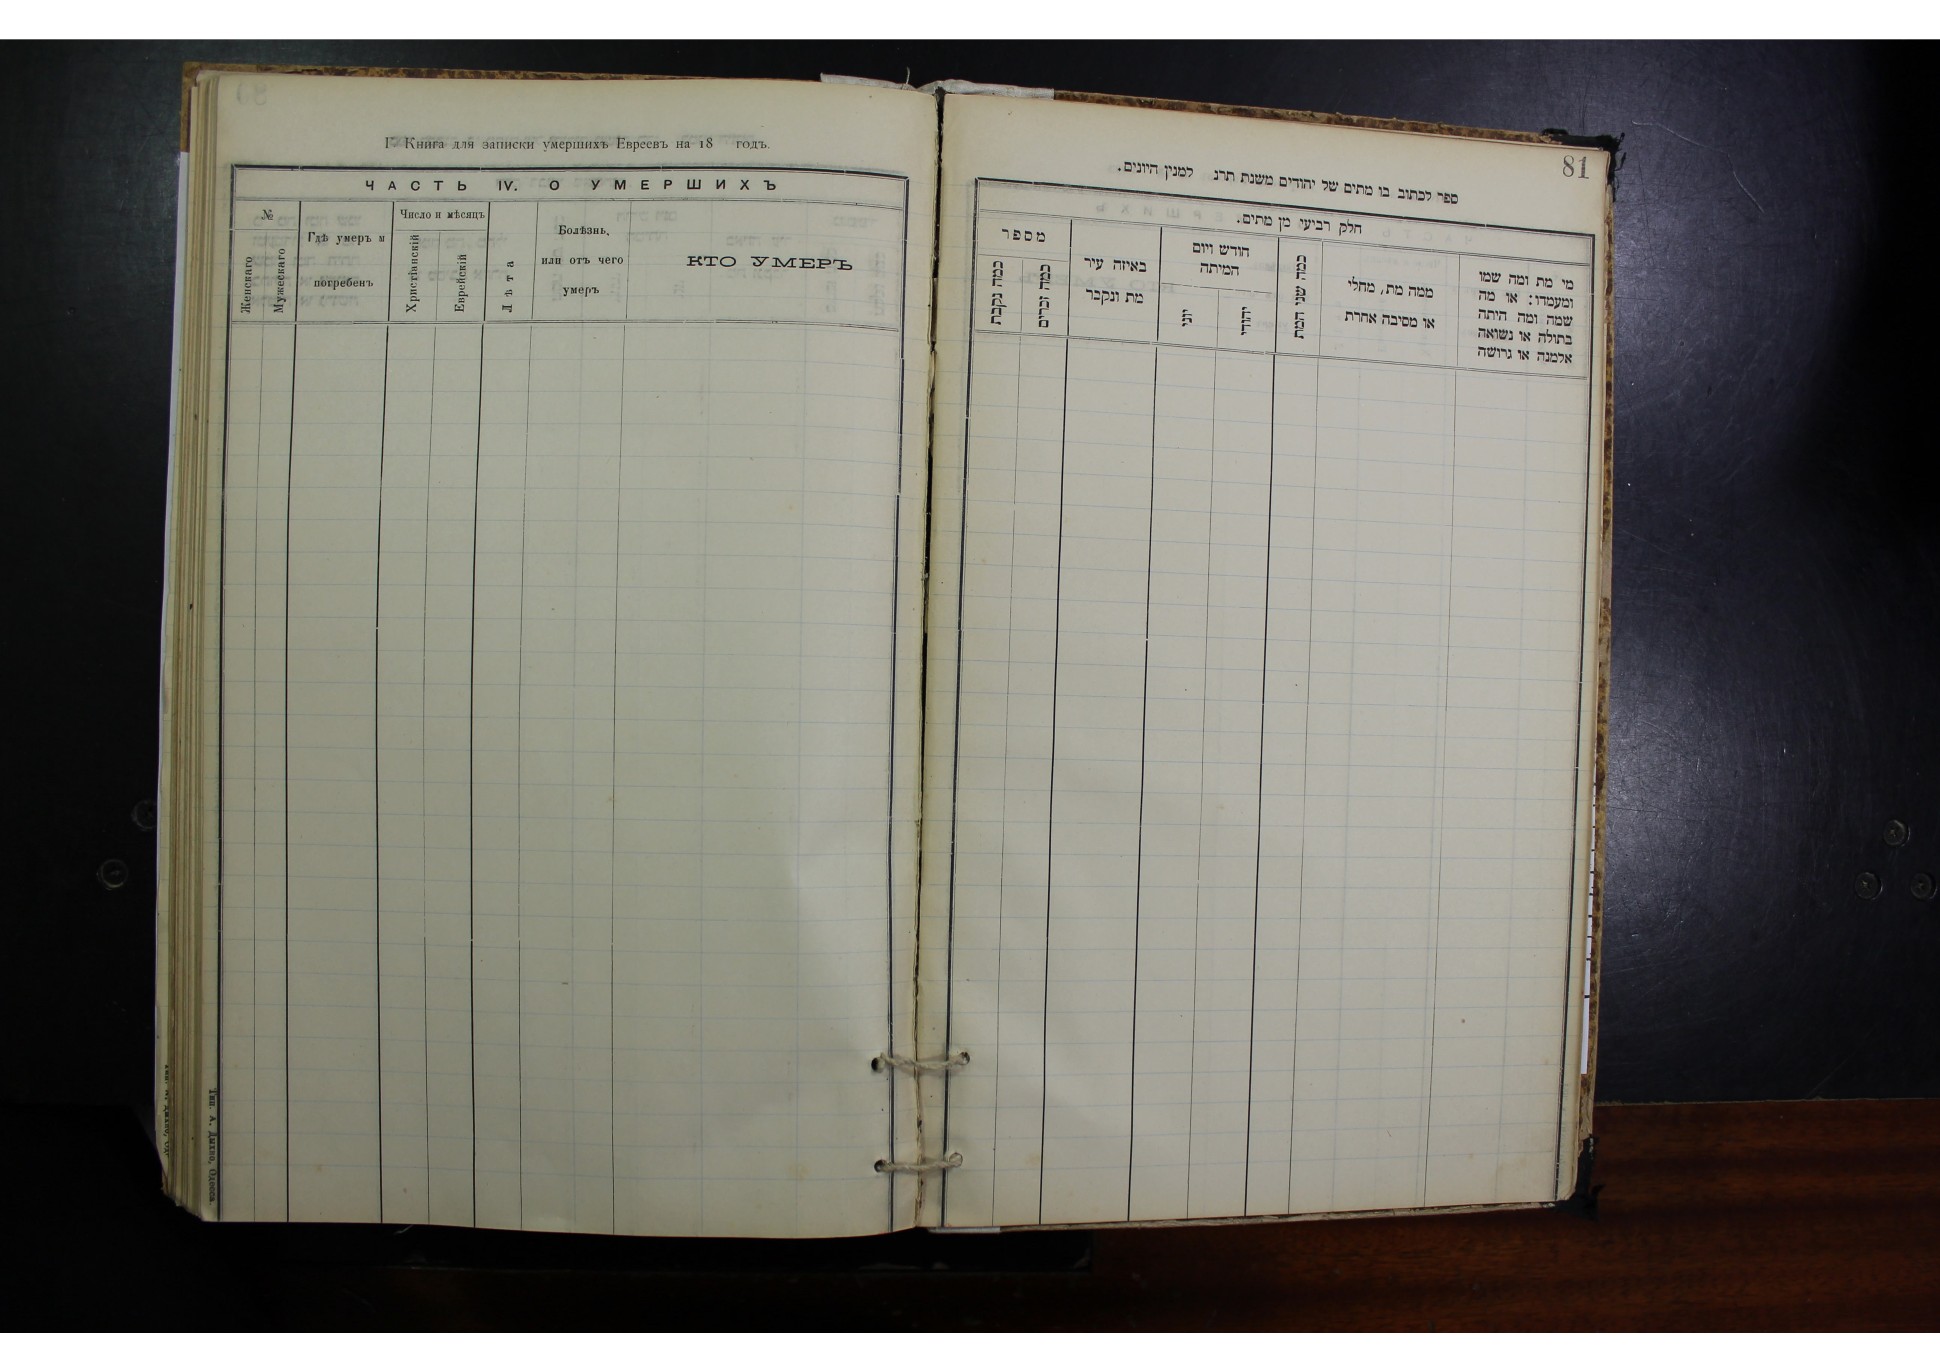 Г Книга для записки умершихъ Евреевъ на 18 годъ.
ЧАСТЬ IV. О УМЕРШИХЪ
№
Женскаго
Мужескаго
Гдѣ умеръ и
погребенъ
Число и мѣсяцъ
Христіанскій
Еврейскій
Лѣта
Болѣзнь,
или отъ чего
умеръ
КТО УМЕРЪ
Тип. А. Дыхно, Одесса
81
ספר לכתוב בו מתים של יהודים משנת תרנ למנין היונים.
חלק רביעי מן מתים.
מי מת ומה שמו
ומעמדו: או מה
שמה ומה היתה
בתולה או נשואה
אלמנה או גרושה
ממה מת, מחלי
או מסיבה אחרת
כמה שני המת
חודש ויום
המיתה
יהודי
יוני
באיזה עיר
מת ונקבר
מספר
כמה זכרים
כמה נקבת